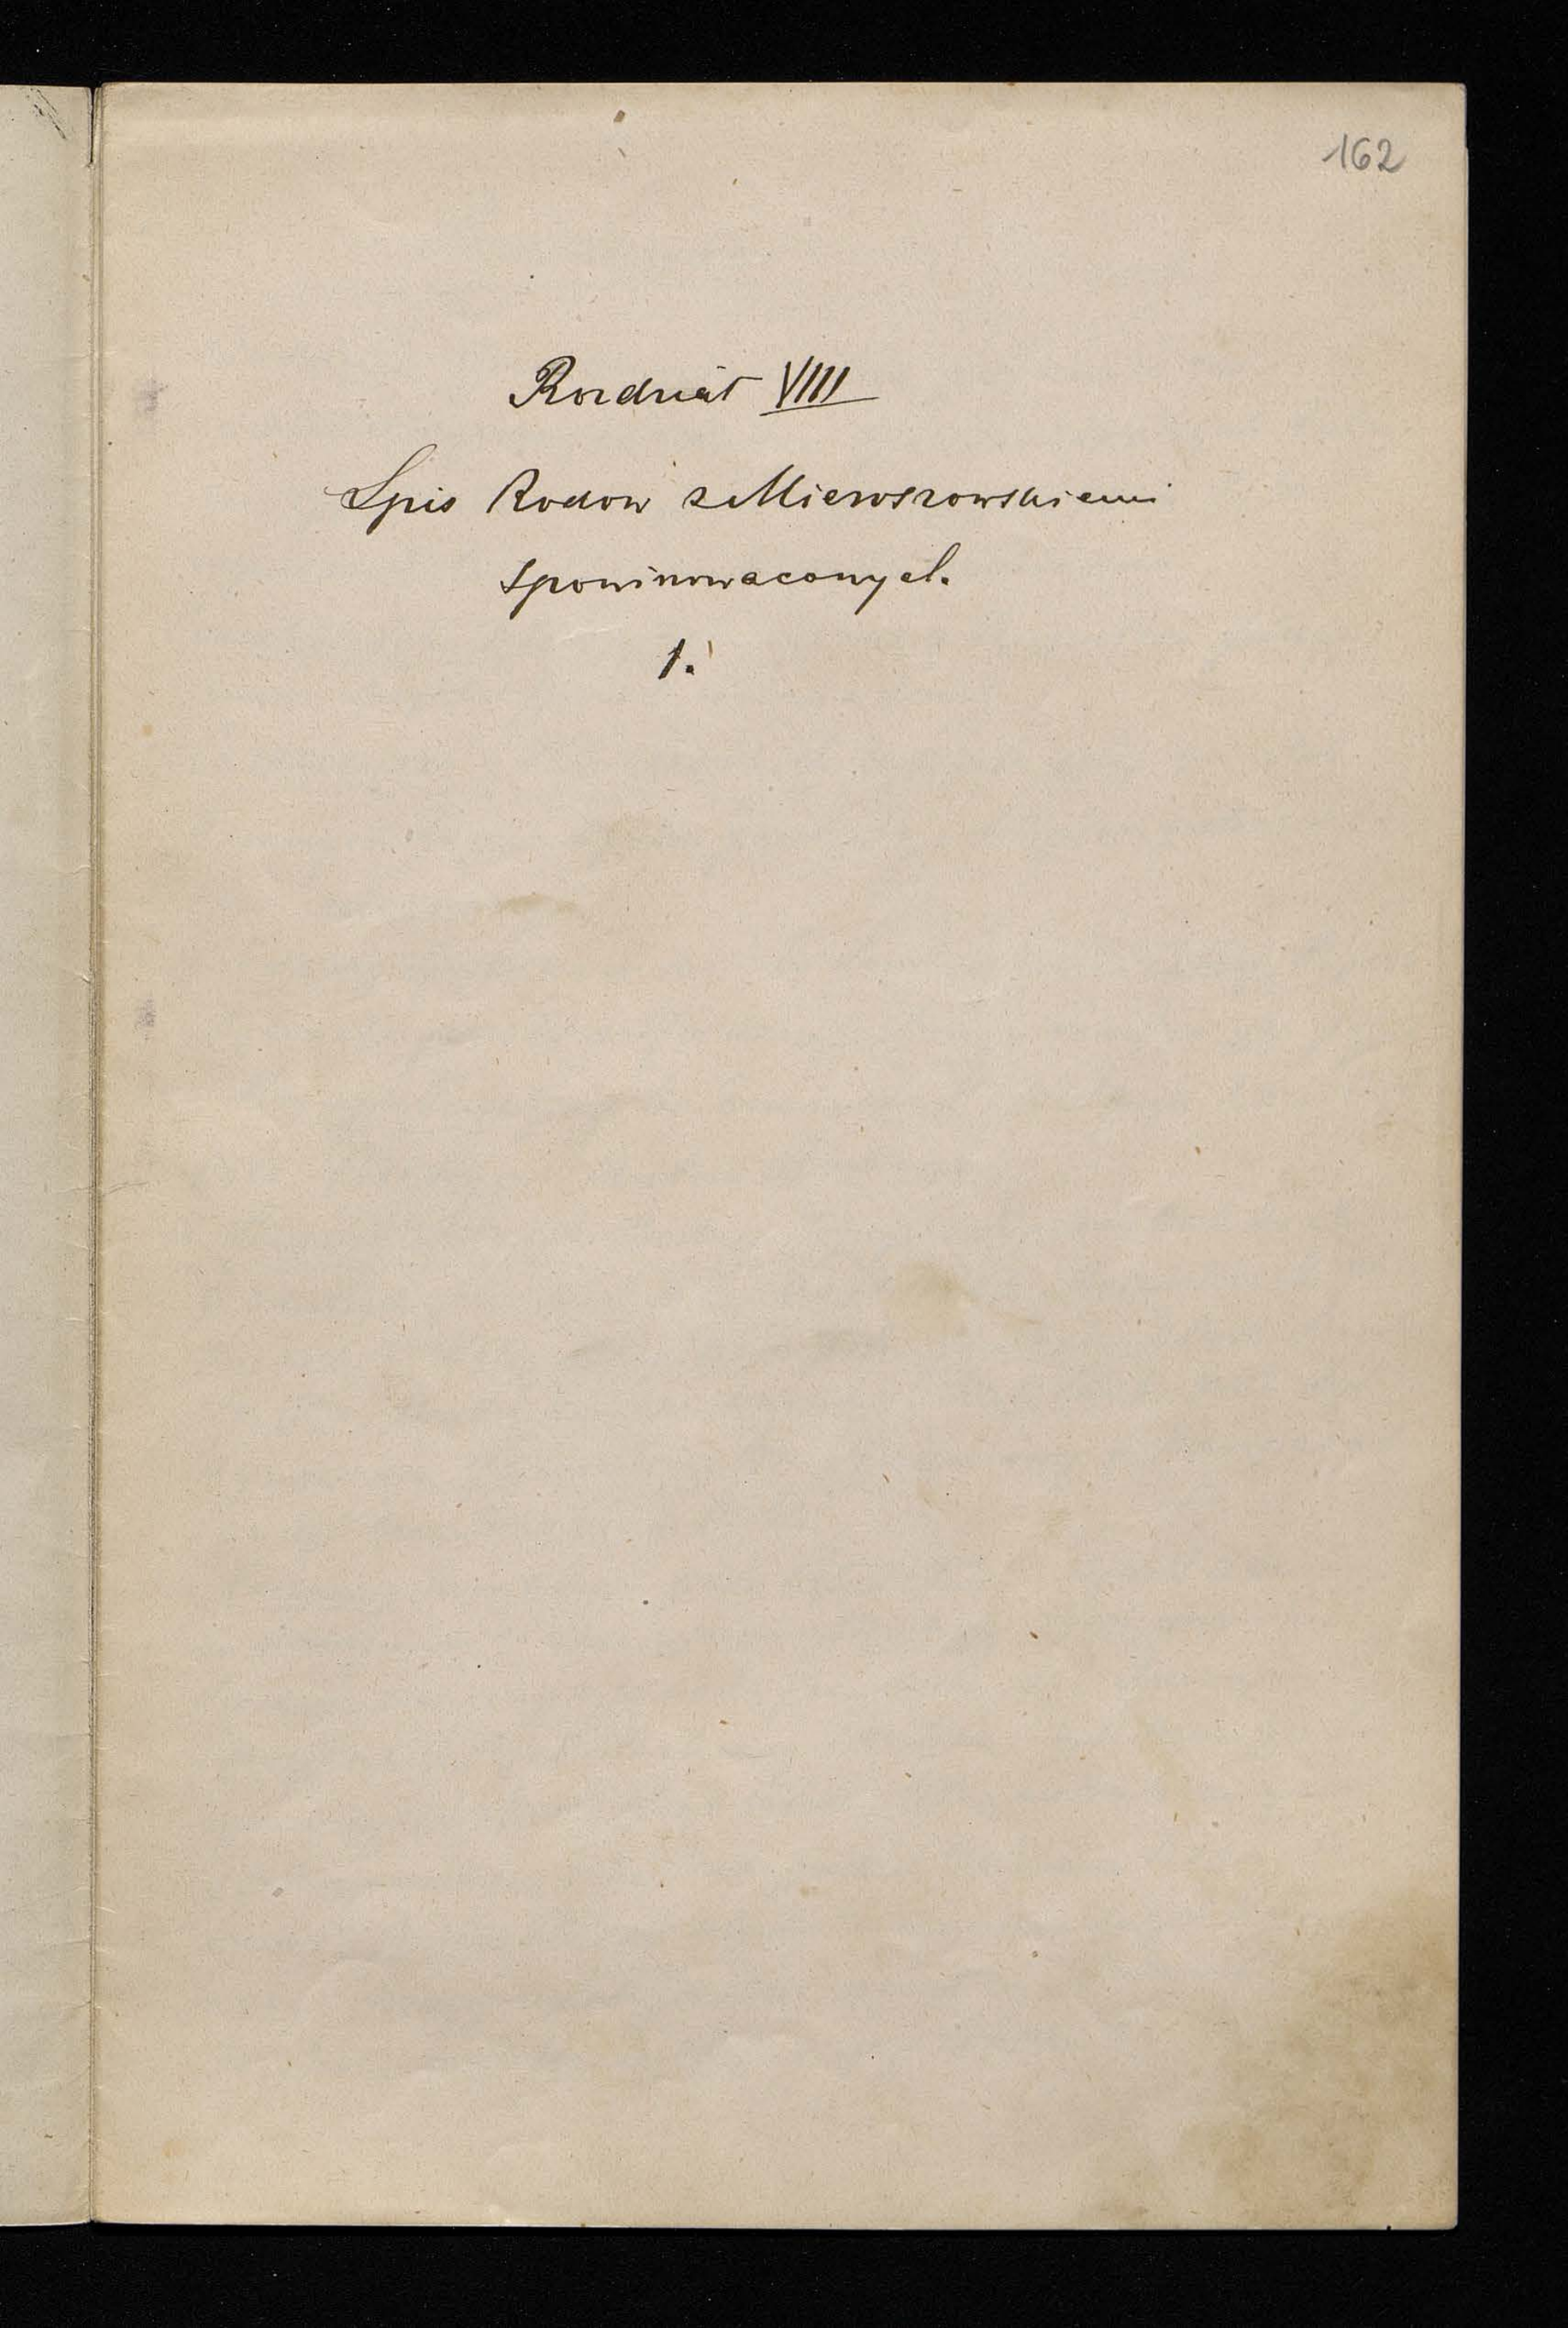 162
Rozdział VIIII
Spis Rodow z Mieroszowskiemi
spowinowaconych.
1.